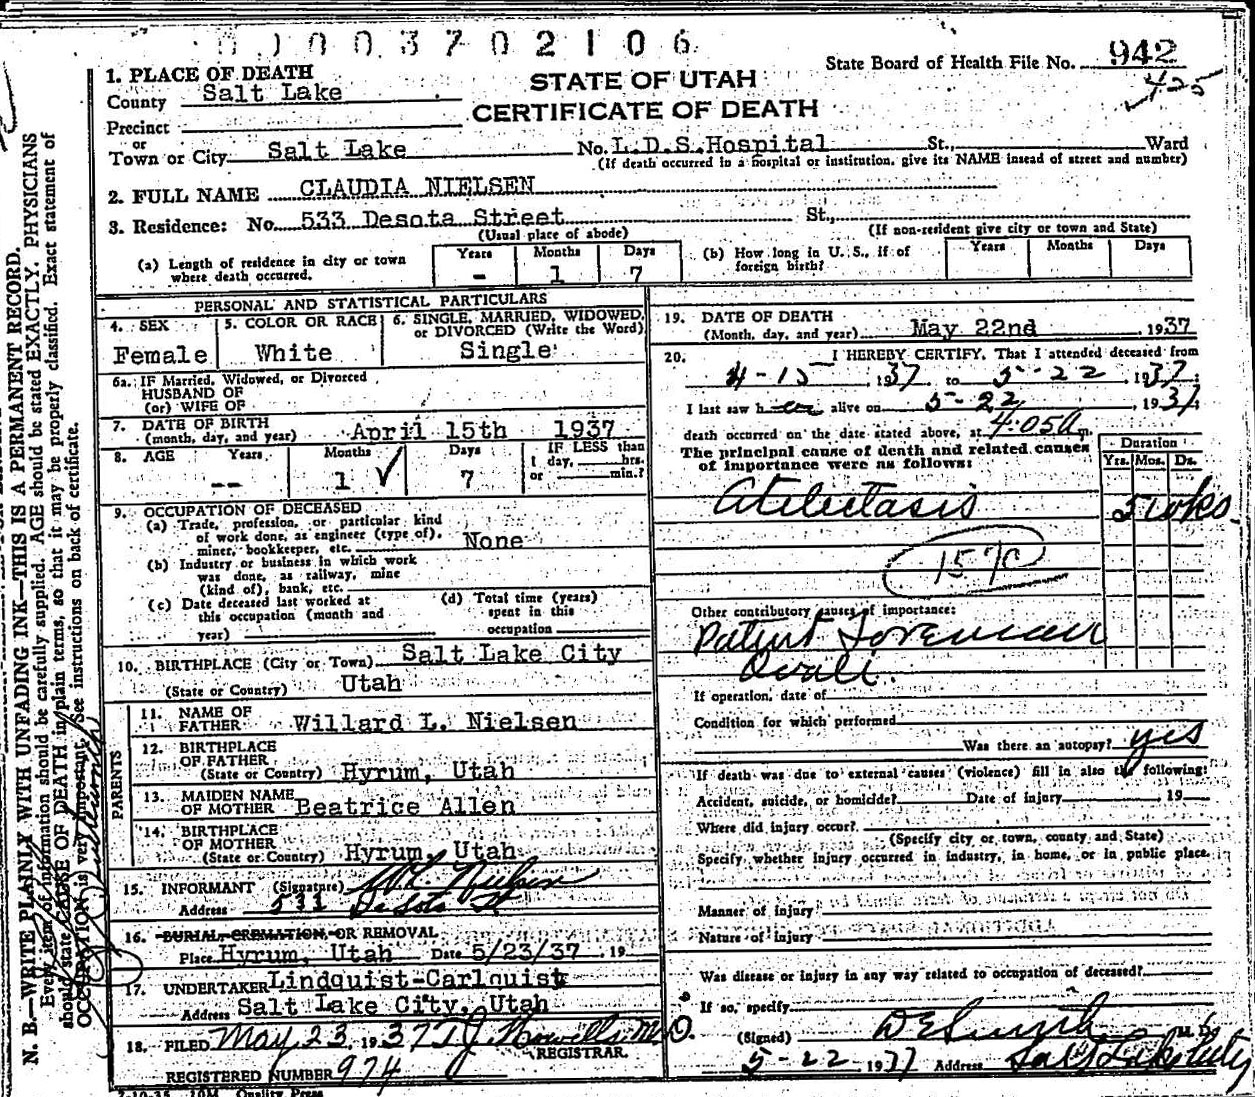 0 0 0 3 7 0 2 1 0 6
State Board of Health File No. 942
425
STATE OF UTAH
CERTIFICATE OF DEATH
1. PLACE OF DEATH
County Salt Lake
Precinct
or
Town or City Salt Lake No. L.D.S. Hospital St., Ward
(If death occurred in a hospital or institution, give its NAME insead of street and number)
2. FULL NAME CLAUDIA NIELSEN
3. Residence: No. 533 Desota Street St.,
(Usual place of abode) (If non-resident give city or town and State)
(a) Length of residence in city or town where death occurred. Years - Months 1 Days 7
(b) How long in U. S., if of foreign birth? Years Months Days
PERSONAL AND STATISTICAL PARTICULARS
4. SEX Female
5. COLOR OR RACE White
6. SINGLE, MARRIED, WIDOWED, or DIVORCED (Write the Word) Single
6a. IF Married, Widowed, or Divorced
HUSBAND OF
(or) WIFE OF
7. DATE OF BIRTH
(month, day, and year) April 15th 1937
8. AGE Years -- Months 1 ✓ Days 7 IF LESS than 1 day, hrs. or min.?
9. OCCUPATION OF DECEASED
(a) Trade, profession, or particular kind
of work done, as engineer (type of),
miner, bookkeeper, etc. None
(b) Industry or business in which work
was done, as railway, mine
(kind of), bank, etc.
(c) Date deceased last worked at
this occupation (month and
year)
(d) Total time (years)
spent in this
occupation
10. BIRTHPLACE (City or Town) Salt Lake City
(State or Country) Utah
PARENTS
11. NAME OF
FATHER Willard L. Nielsen
12. BIRTHPLACE
OF FATHER
(State or Country) Hyrum, Utah
13. MAIDEN NAME
OF MOTHER Beatrice Allen
14. BIRTHPLACE
OF MOTHER
(State or Country) Hyrum, Utah
15. INFORMANT (Signature) W L Nielsen
Address 531 DeSoto St
16. BURIAL, CREMATION, OR REMOVAL
Place Hyrum, Utah Date 5/23/37 19
17. UNDERTAKER Lindquist-Carlquist
Address Salt Lake City, Utah
18. FILED May 23, 1937 T J Howells M.D.
REGISTRAR.
REGISTERED NUMBER 974
7-10-35 10M Quality Press
19. DATE OF DEATH
(Month, day, and year) May 22nd 1937
20. I HEREBY CERTIFY, That I attended deceased from
4-15 1937 to 5-22 1937;
I last saw h er alive on 5-22, 1937;
death occurred on the date stated above, at 4:05 a m.
The principal cause of death and related causes
of importance were as follows:
Duration
Yrs. Mos. Ds.
Atelectasis 5 wks.
157c
Other contributory causes of importance:
Patent Foreman
Ovali.
If operation, date of
Condition for which performed
Was there an autopsy? yes
If death was due to external causes (violence) fill in also the following:
Accident, suicide, or homicide? Date of injury 19
Where did injury occur?
(Specify city or town, county and State)
Specify whether injury occurred in industry, in home, or in public place.
Manner of injury
Nature of injury
Was disease or injury in any way related to occupation of deceased?
If so, specify
(Signed) D E Smith M. D.
5-22 1937 Address Salt Lake City
N. B.—WRITE PLAINLY WITH UNFADING INK—THIS IS A PERMANENT RECORD.
Every item of information should be carefully supplied. AGE should be stated EXACTLY. PHYSICIANS
should state CAUSE OF DEATH in plain terms, so that it may be properly classified. Exact statement of
OCCUPATION is very important. See instructions on back of certificate.